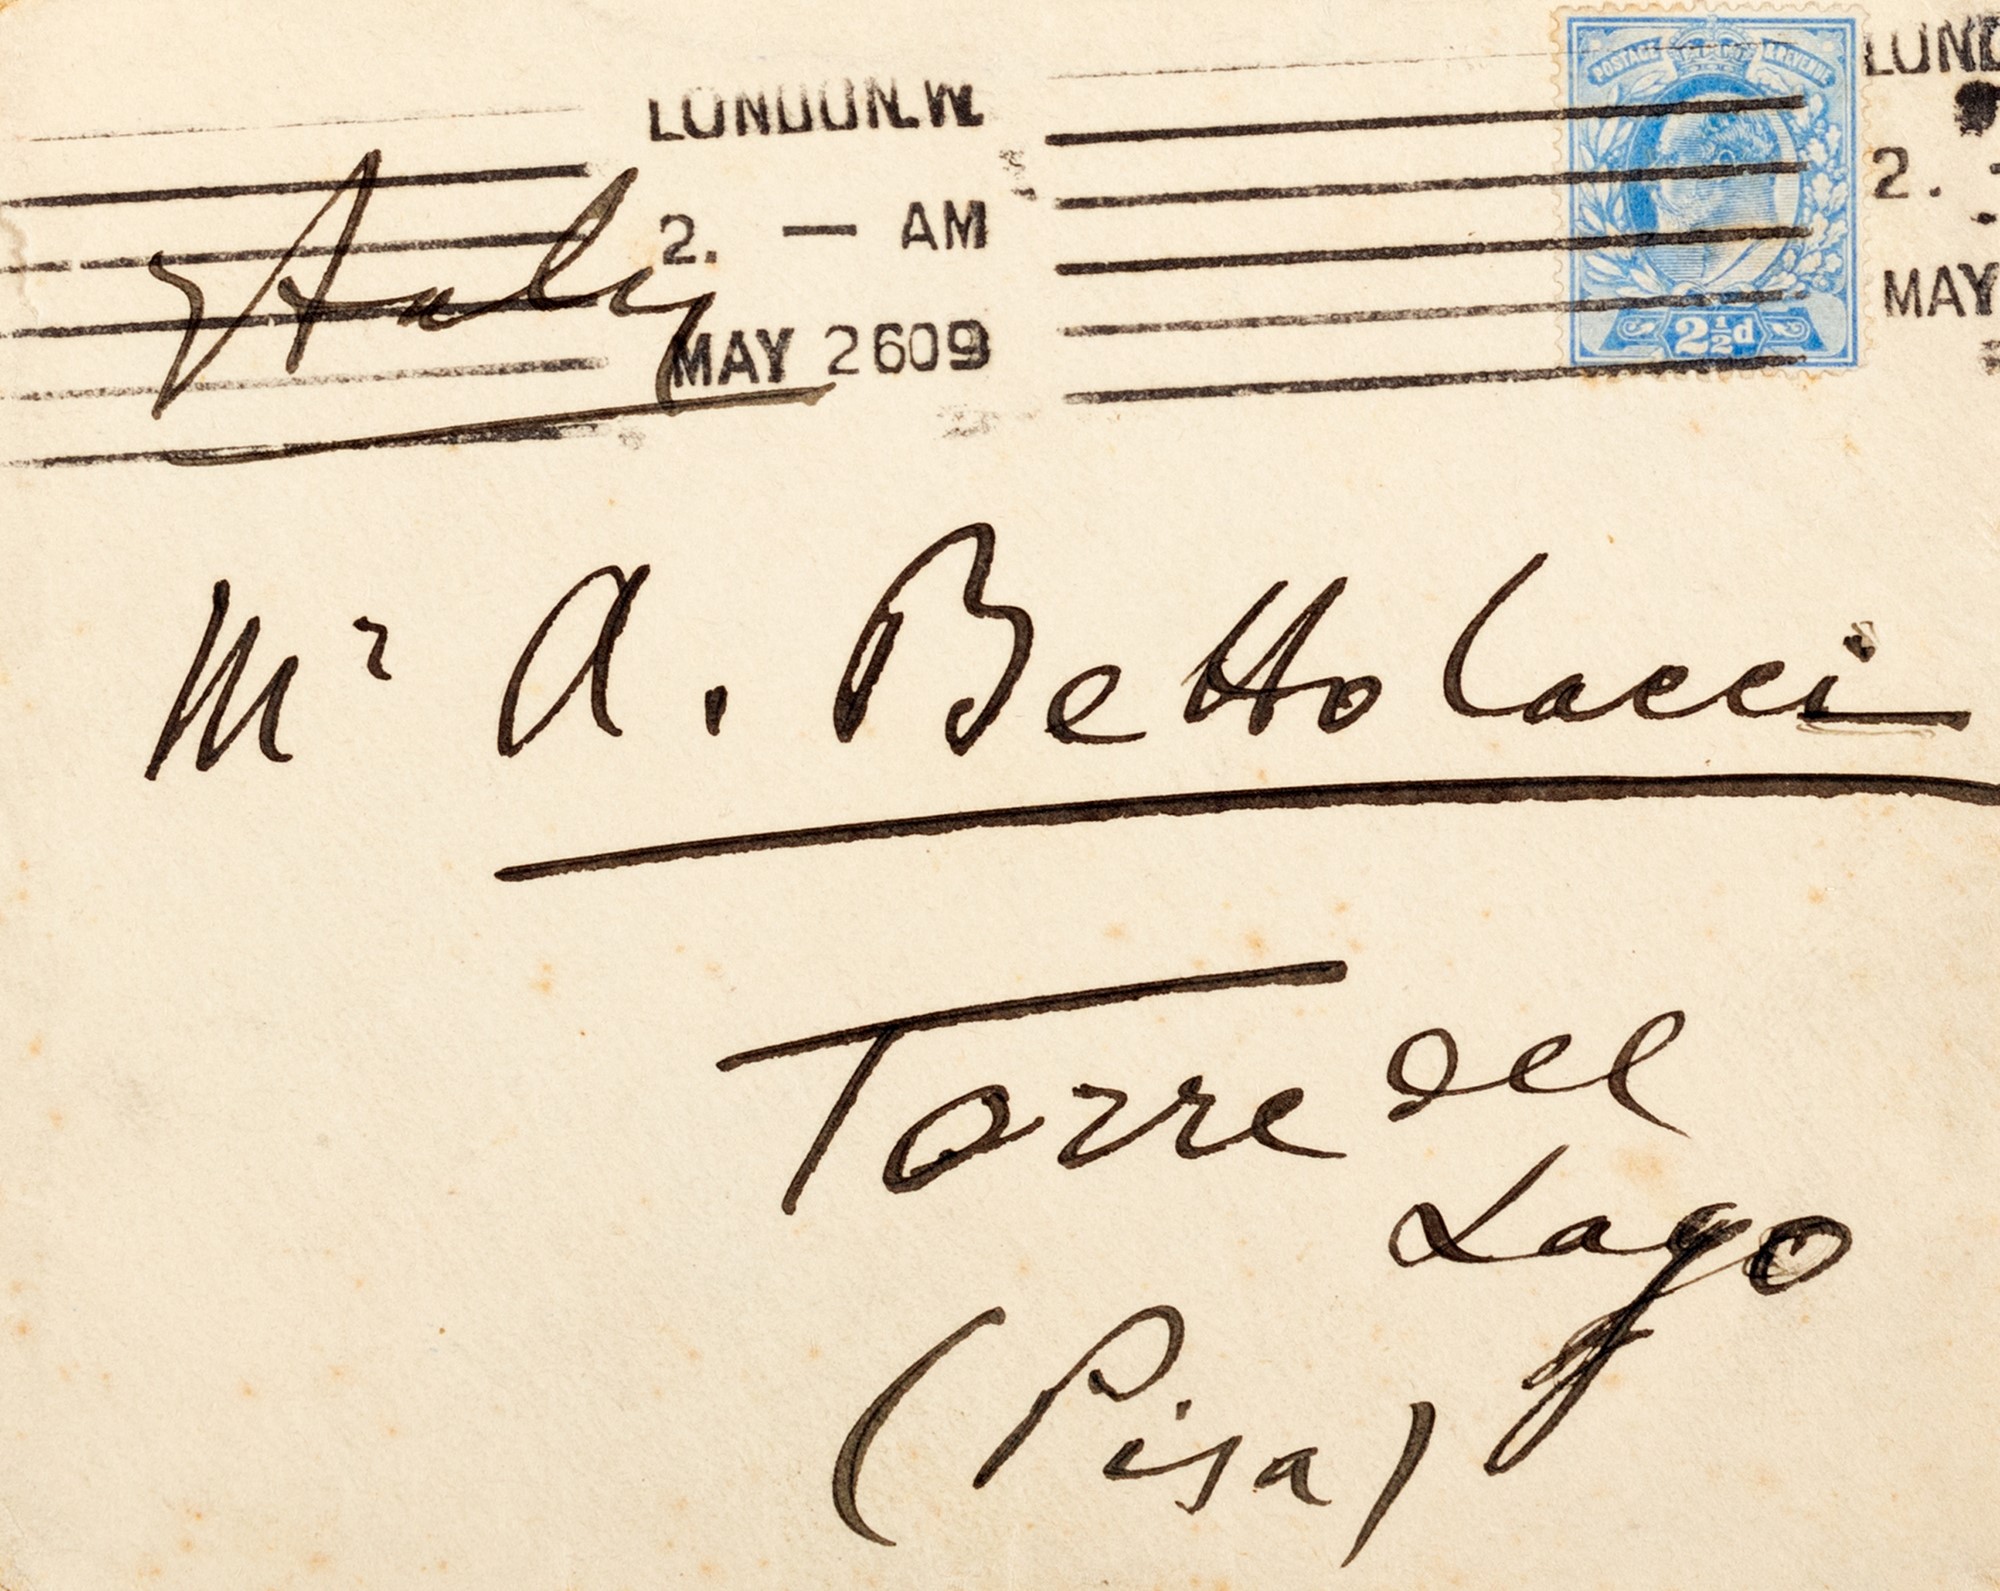 POSTAGE REVENUE
2½d
LONDON.W.
2. — AM
MAY 26 09
LOND
2. -
MAY
Italy
Mr A. Bettolacci
Torre del
Lago
(Pisa)